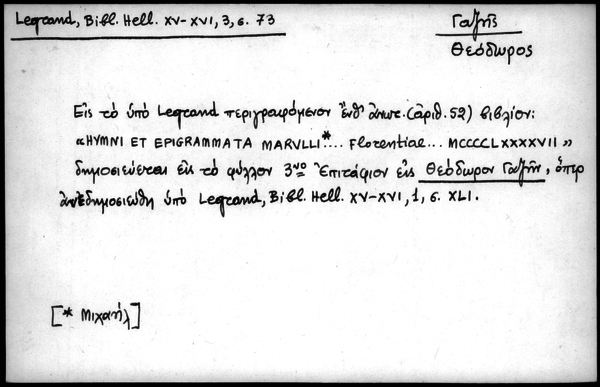 Legrand, Bibl. Hell. XV-XVI, 3, σ. 73
Γαζῆς
Θεόδωρος
Εἰς τὸ ὑπὸ Legrand περιγραφόμενον ἔνθ' ἀνωτ. (ἀριθ. 52) βιβλίον:
«HYMNI ET EPIGRAMMATA MARVLLI*... Florentiae... MCCCCLXXXXVII»
δημοσιεύεται εἰς τὸ φύλλον 3νο Ἐπιτάφιον εἰς Θεόδωρον Γαζῆν, ὅπερ
ἀνεδημοσιεύθη ὑπὸ Legrand, Bibl. Hell. XV-XVI, 1, σ. XLI.
[* Μιχαήλ]